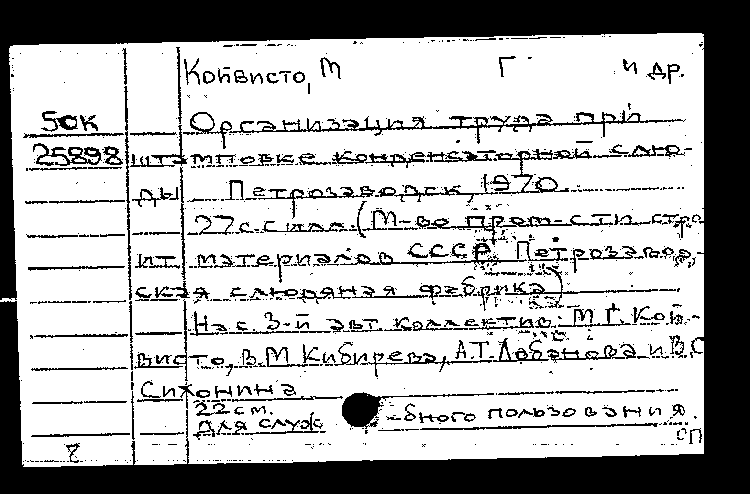 Койвисто, М Г. и др.
50к Организация труда при
25898 штамповке конденсаторной слю-
ды Петрозаводск, 1970.
27 с. с илл. (М-во пром-сти стро
ит. материалов СССР. Петрозавод-
ская слюдяная фабрика)
На с. 3-й авт. коллектив: М.Г. Кой-
висто, В.М Кибирева, А.Т. Лобанова и В.С
Сихонина
22 см.
Для служ -бного пользования.
сп